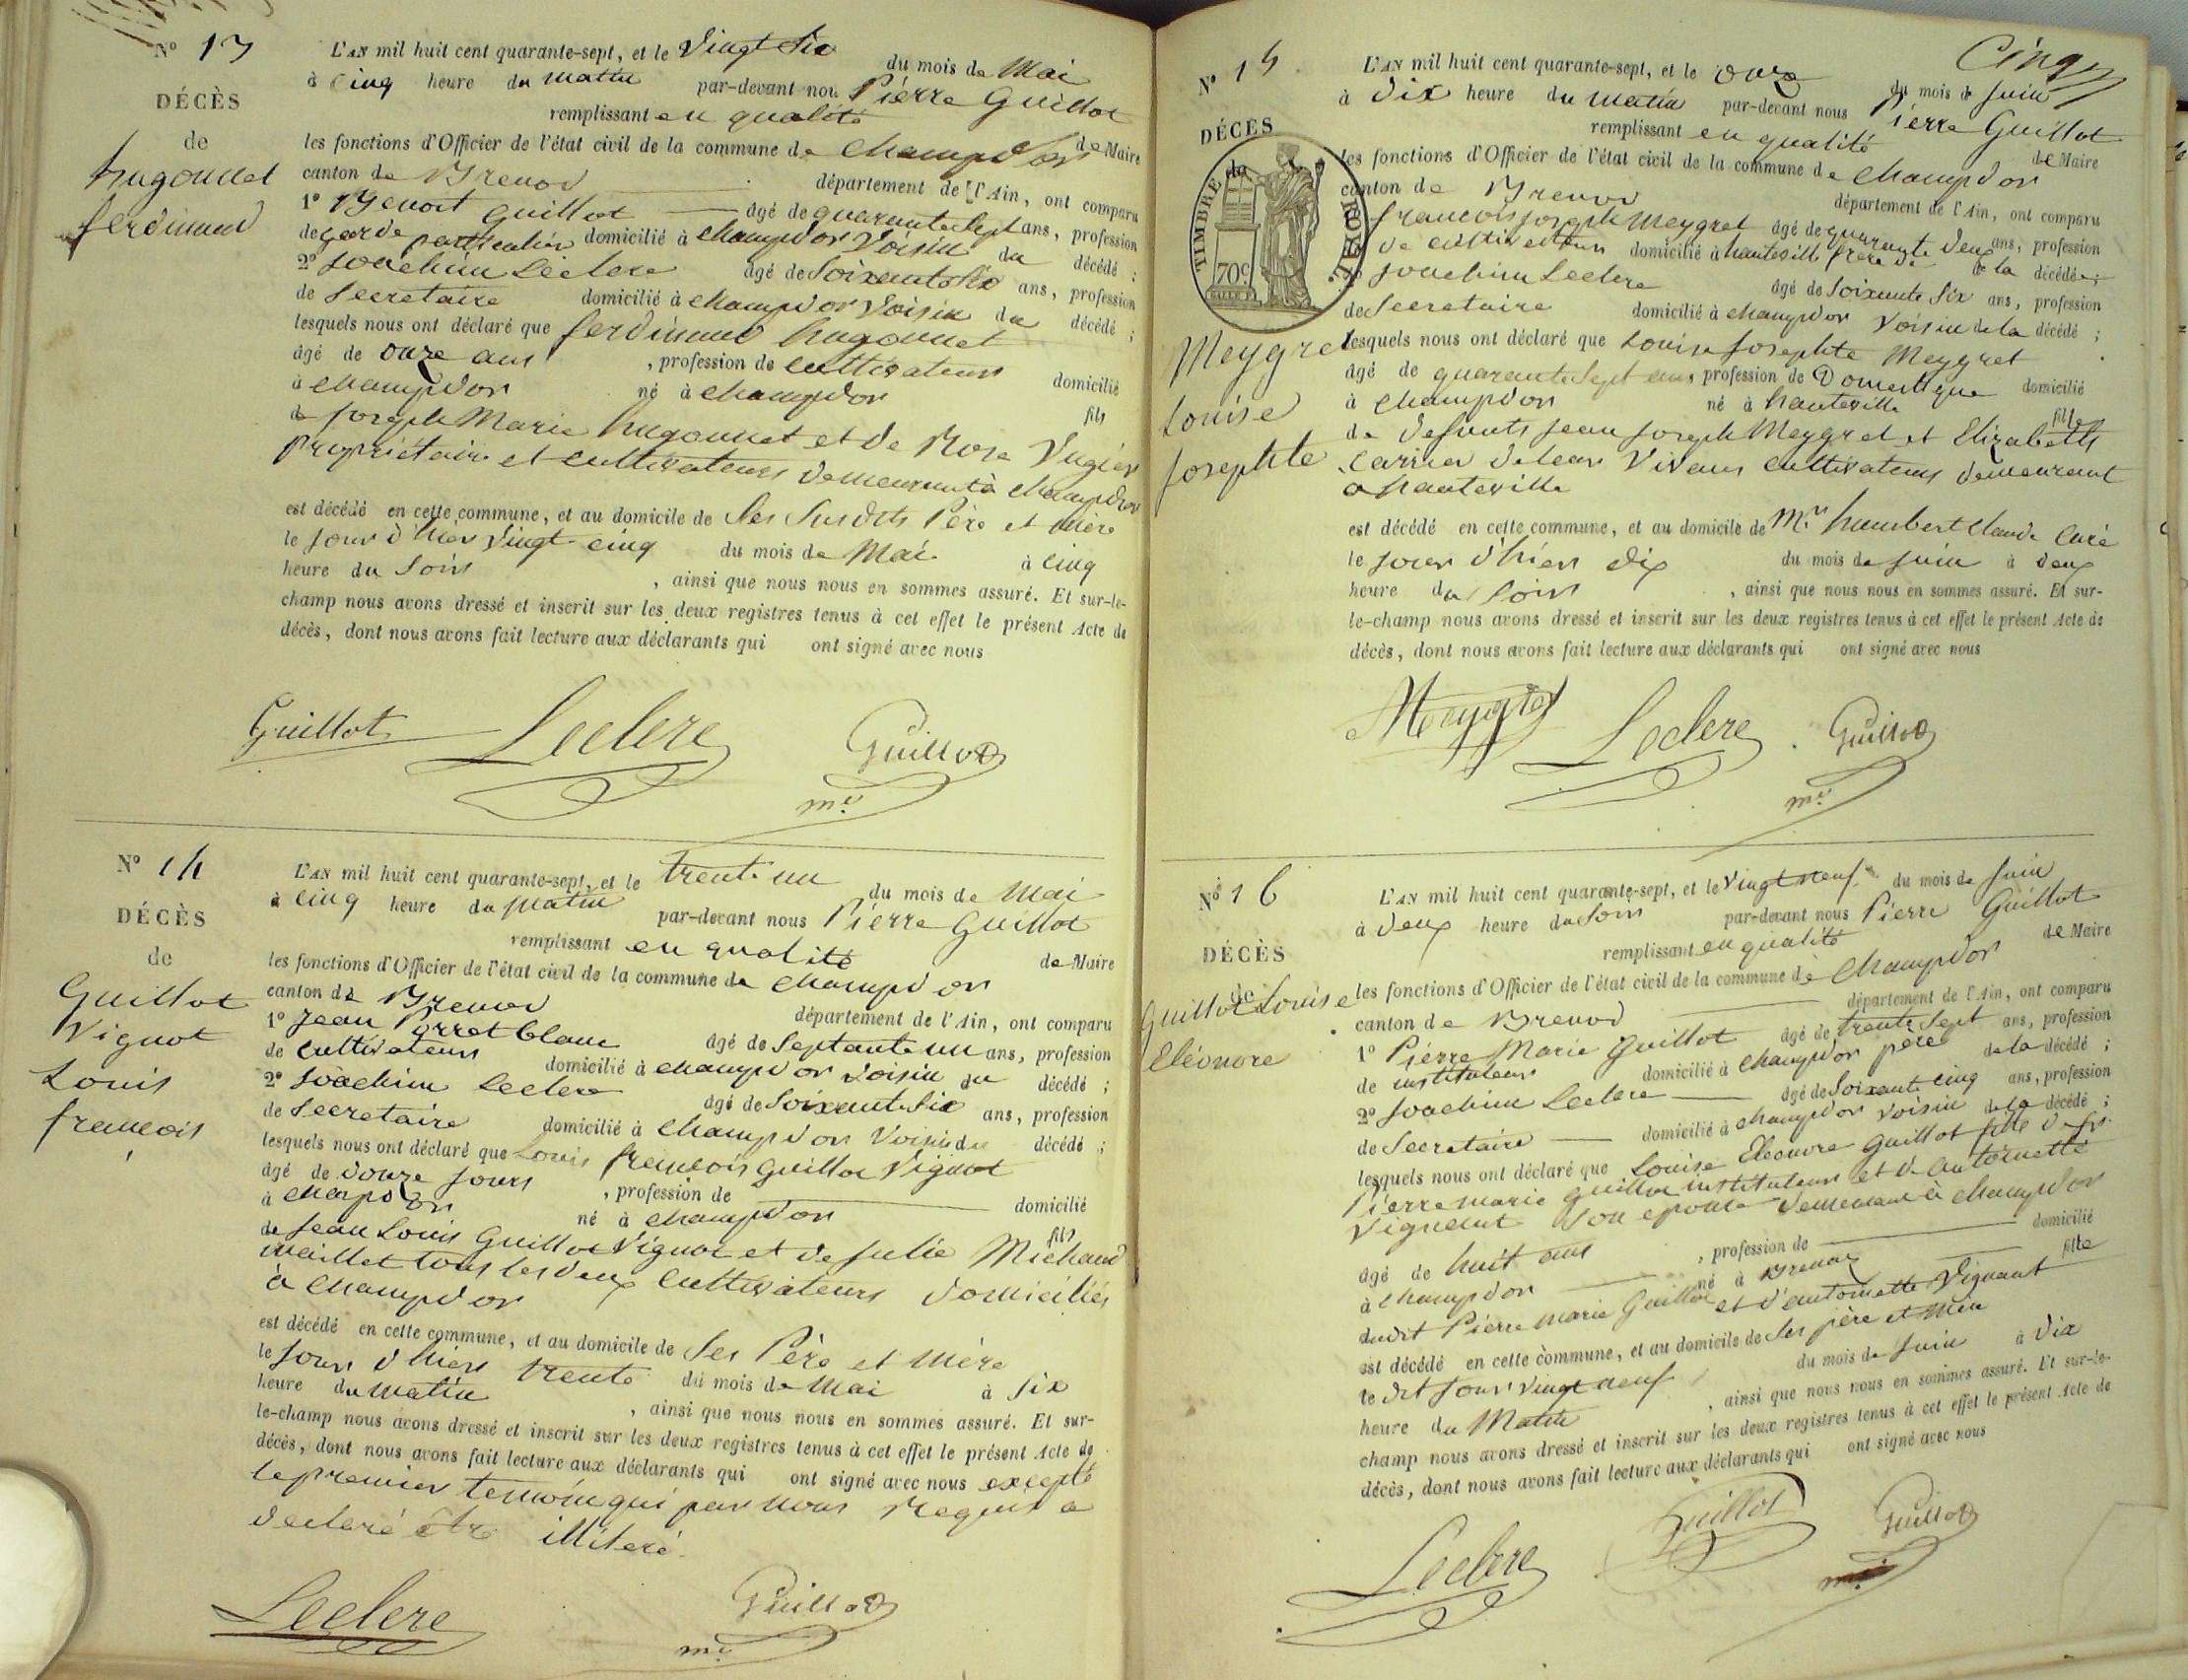 N° 13
DÉCÈS
de
hugonnet
ferdinand
L'AN mil huit cent quarante-sept, et le Vingt Six du mois de Mai
à Cinq heure du matin par-devant nou Pièrre Guillot
remplissant en qualité de Maire
les fonctions d'Officier de l'état civil de la commune de Champdor
canton de Brenod département de l'Ain, ont comparu
1° Benoit Guillot âgé de quarante Sept ans, profession
de garde particulier domicilié à Champdor Voisin du décédé ;
2° Joachim Leclerc âgé de Soixante Six ans, profession
de Secretaire domicilié à Champdor Voisin du décédé ;
lesquels nous ont déclaré que ferdinand hugonnet
âgé de onze ans , profession de Cultivateur domicilié
à Champdor né à Champdor fils
de Joseph Marie hugonnet et de Rose Vugier
Propriétaire et Cultivateurs demeurant à Champdor
est décédé en cette commune, et au domicile de Ses Susdits Père et Mère
le Jour d'hier Vingt-cinq du mois de Mai à Cinq
heure du Soir , ainsi que nous nous en sommes assuré. Et sur-le-
champ nous avons dressé et inscrit sur les deux registres tenus à cet effet le présent Acte de
décès, dont nous avons fait lecture aux déclarants qui ont signé avec nous
Guillot Leclerc Guillot
me
N° 14
DÉCÈS
de
Guillot
Vignot
Louis
françois
L'AN mil huit cent quarante-sept, et le trente un du mois de Mai
à Cinq heure du matin par-devant nous Pièrre Guillot
remplissant en qualité de Maire
les fonctions d'Officier de l'état civil de la commune de Champdor
canton de Brenod département de l'Ain, ont comparu
1° Jean Perret blanc âgé de Septante un ans, profession
de Cultivateur domicilié à Champdor Voisin du décédé ;
2° Joachim Leclerc âgé de Soixante Six ans, profession
de Secretaire domicilié à Champdor Voisin du décédé ;
lesquels nous ont déclaré que Louis françois Guillot Vignot
âgé de douze Jours , profession de domicilié
à Champdor né à Champdor fils
de Jean Louis Guillot Vignot et de Julie Michaud
maillet tous les deux Cultivateurs domiciliés
à Champdor
est décédé en cette commune, et au domicile de Ses Père et Mère
le Jour d'hier trente du mois de Mai à Six
heure du Matin , ainsi que nous nous en sommes assuré. Et sur-
le-champ nous avons dressé et inscrit sur les deux registres tenus à cet effet le présent Acte de
décès, dont nous avons fait lecture aux déclarants qui ont signé avec nous excepté
le premier temoin qui par nous Requis a
declaré être illiteré.
Leclerc Guillot
me
Cinq
N° 15
DÉCÈS
de
TIMBRE ROYAL
70c
Meygret
Louise
Josephte
L'AN mil huit cent quarante-sept, et le onze du mois de Juin
à Dix heure du matin par-devant nous Pièrre Guillot
remplissant en qualité de Maire
les fonctions d'Officier de l'état civil de la commune de Champdor
canton de Brenod département de l'Ain, ont comparu
françois Joseph Meygret âgé de quarante deux ans, profession
de cultivateur domicilié à hauteville frère de la décédée ;
Joachim Leclerc âgé de Soixante Six ans, profession
de Secretaire domicilié à Champdor Voisin de la décédé ;
lesquels nous ont déclaré que Louise Josephte Meygret
âgé de quarante Sept ans, profession de Domestique domicilié
à Champdor né à hauteville fille
de defunts Jean Joseph Meygret et Elizabeth
Carrier de leur Vivans Cultivateurs demeurant
a hauteville
est décédé en cette commune, et au domicile de Mr humbert Claude Curé
le Jour d'hier dix du mois de Juin à deux
heure du Soir , ainsi que nous nous en sommes assuré. Et sur-
le-champ nous avons dressé et inscrit sur les deux registres tenus à cet effet le présent Acte de
décès, dont nous avons fait lecture aux déclarants qui ont signé avec nous
Meygret Leclerc Guillot
me
N° 16
DÉCÈS
de
Guillot Louise
Eléonore
L'AN mil huit cent quarante-sept, et le Vingt neuf du mois de Juin
à deux heure du Soir par-devant nous Pierre Guillot
remplissant en qualité de Maire
les fonctions d'Officier de l'état civil de la commune de Champdor
canton de Brenod département de l'Ain, ont comparu
1° Pièrre Marie Guillot âgé de trente Sept ans, profession
de instituteur domicilié à Champdor père de la décédé ;
2° Joachim Leclerc âgé de Soixante cinq ans, profession
de Secretaire domicilié à Champdor voisin de la décédé ;
lesquels nous ont déclaré que Louise Eléonore Guillot fille de
Pierre marie Guillot instituteur et de Antoinette
Vignant Son epouse demeurant à Champdor
âgé de huit ans , profession de domicilié
à Champdor né à Brenod fille
dudit Pierre marie Guillot et d'antoinette Vignant
est décédé en cette commune, et au domicile de Ses père et Mère
le dit Jour vingt neuf du mois de Juin à Dix
heure du Matin , ainsi que nous nous en sommes assuré. Et sur-le-
champ nous avons dressé et inscrit sur les deux registres tenus à cet effet le présent Acte de
décès, dont nous avons fait lecture aux déclarants qui ont signé avec nous
Leclerc Guillot Guillot
me